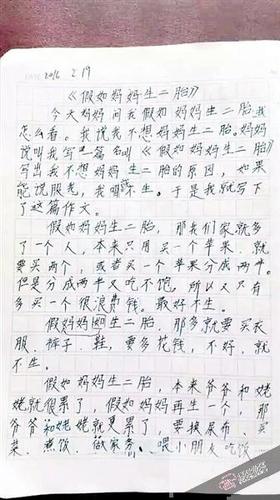 2016 2.19
《假如妈妈生二胎》
今天妈妈问我假如妈妈生二胎我
怎么看。我说我不想妈妈生二胎。妈妈
说叫我写一篇名叫《假如妈妈生二胎》
写出我不想妈妈生二胎的原因，如果
能说服她，我就不生。于是我就写下
了这篇作文。
假如妈妈生二胎，那我们家就多
了一个人，本来只用买一个苹果，就
要买两个，或者买一个苹果分成两半。
但是分成两半又吃不饱。所以又只有
多买一个很浪费钱。最好不生。
假妈妈如生二胎，那多就要买衣
服、裤子、鞋，要多花钱，不好，就
不生。
假如妈妈生二胎，本来爷爷和姥
姥就很累了，假如妈妈再生一个，那
爷爷和姥姥就更累了，要换尿布、买
菜、煮饭、做家务、喂小朋友吃饭